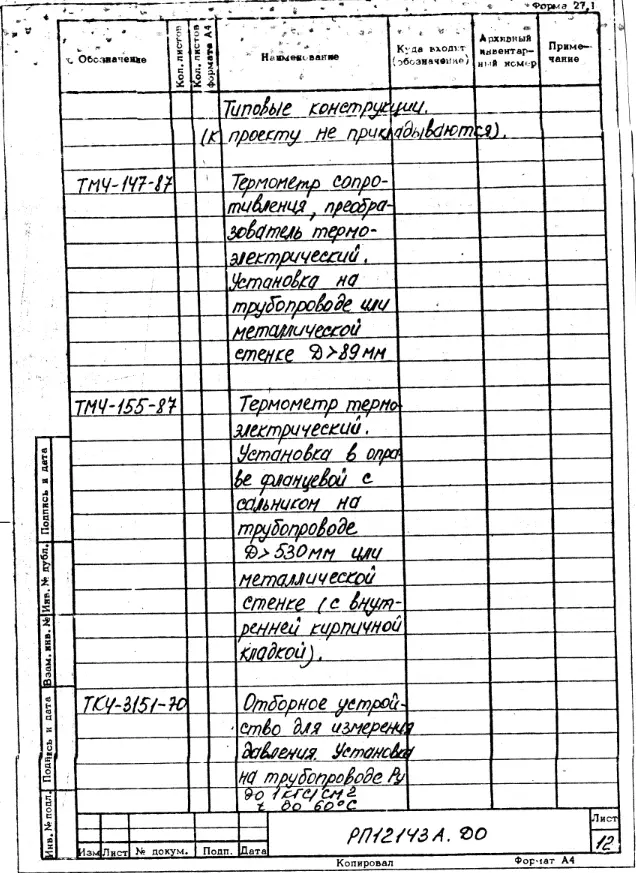 Форма 27,1
Обозначение
Кол. листов
Кол. листов формата А4
Наименование
Куда входит (обозначение)
Архивный инвентарный номер
Примечание
Типовые конструкции.
(к проекту не прикладываются).
ТМЧ-147-87 Термометр сопро-
тивления, преобра-
зователь термо-
электрический.
Установка на
трубопроводе или
металлической
стенке D>89мм
ТМЧ-155-87 Термометр термо-
электрический.
Установка в опра-
ве фланцевой с
сальником на
трубопроводе
D>530мм или
металлической
стенке (с внут-
ренней кирпичной
кладкой).
ТКЧ-3151-70 Отборное устрой-
ство для измерения
давления. Установка
на трубопроводе Ру
до 1кгс/см2
t до 60°С
Подпись и дата
Инв. № дубл.
Взам. инв. №
Подпись и дата
Инв. № подл.
Изм Лист № докум. Подп. Дата
РП12143А. ДО
Лист
12
Копировал Формат А4